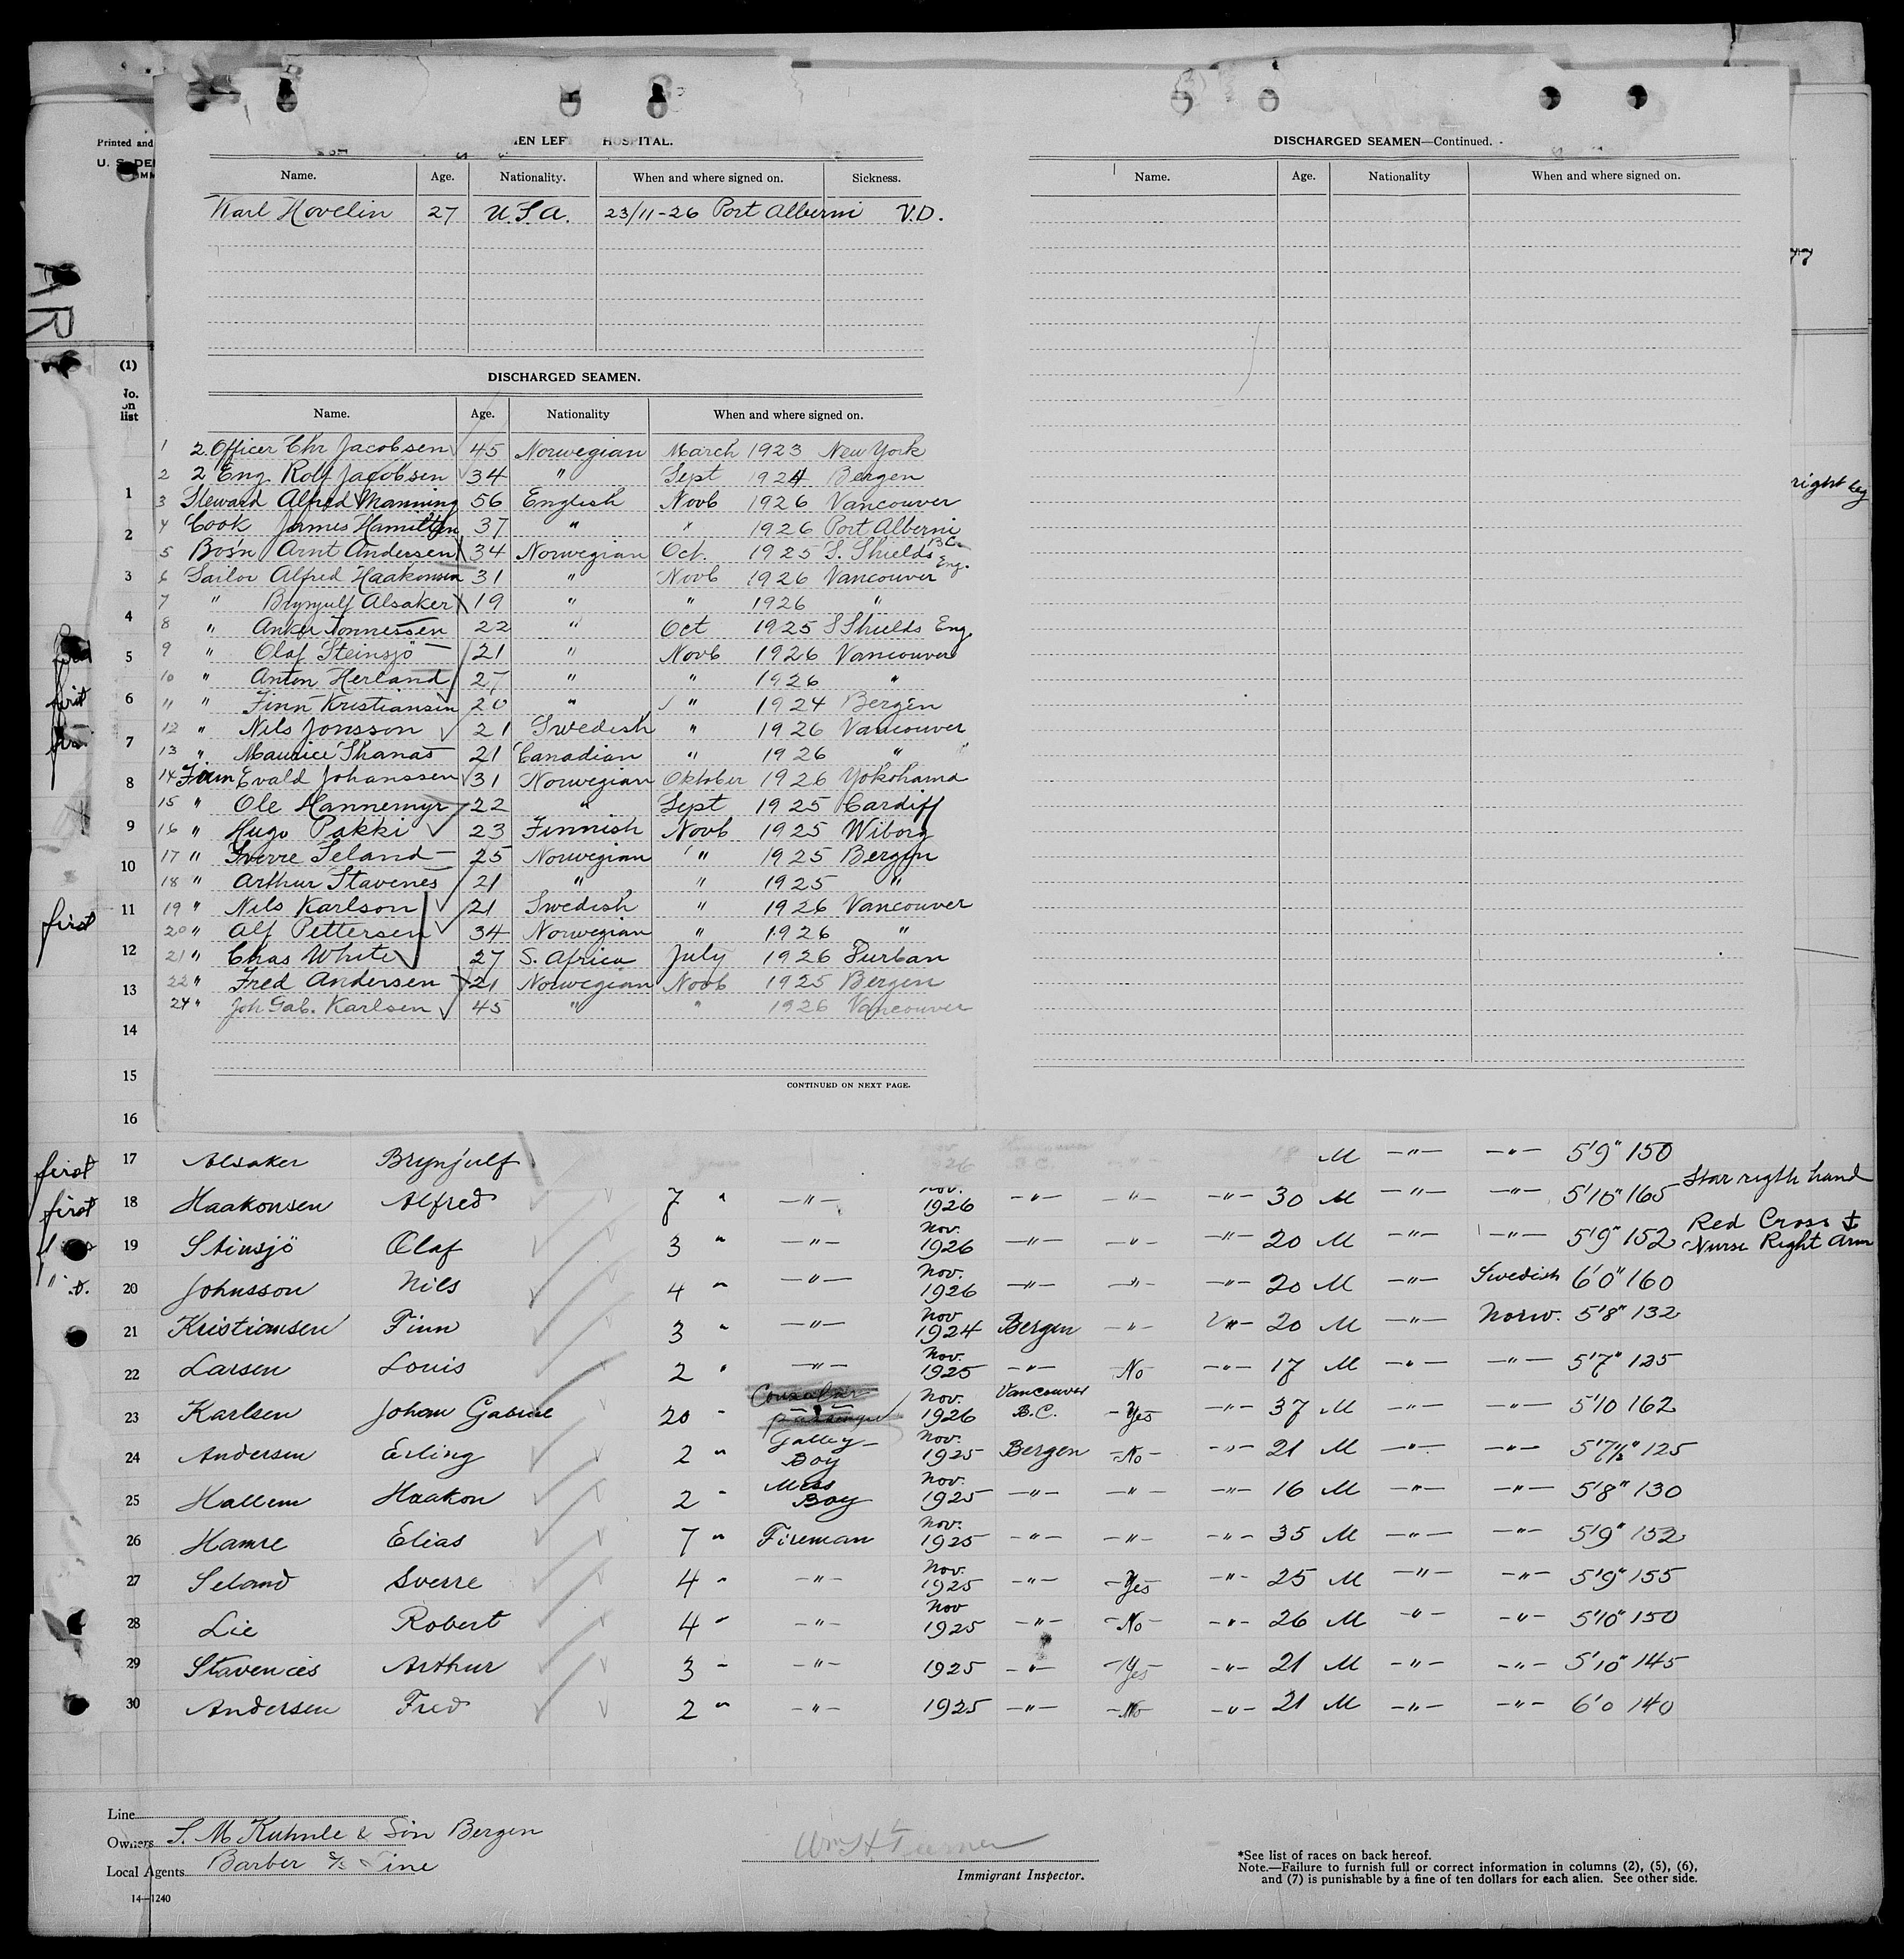 Printed and
U. S. DE
77
HOSPITAL.
Name. Age. Nationality. When and where signed on. Sickness.
Karl Hovelin 27 U.S.A. 23/11-26 Port Alberni V.D.
DISCHARGED SEAMEN.
Name. Age. Nationality When and where signed on.
1 2. Officer Chr Jacobsen 45 Norwegian March 1923 New York
2 2 Eng Rolf Jacobsen 34 " Sept 1924 Bergen
3 Steward Alfred Manning 56 English Novb 1926 Vancouver
4 Cook James Hamilton 37 " " 1926 Port Alberni B.C.
5 Bos'n Arnt Andersen 34 Norwegian Oct. 1925 S. Shields Eng.
6 Sailor Alfred Haakonsen 31 " Novb 1926 Vancouver
7 " Brynjulf Alsaker 19 " " 1926 "
8 " Anker Tonnessen 22 " Oct 1925 S Shields Eng.
9 " Olaf Steinsjö 21 " Novb 1926 Vancouver
10 " Anton Herland 27 " " 1926 "
11 " Finn Kristiansen 20 " " 1924 Bergen
12 " Nils Jonsson 21 Swedish " 1926 Vancouver
13 " Maurice Shanas 21 Canadian " 1926 "
14 Evald Johanssen 31 Norwegian Oktober 1926 Yokohama
15 " Ole Hannemyr 22 " Sept 1925 Cardiff
16 " Hugo Pakki 23 Finnish Novb 1925 Wiborg
17 " Sverre Seland 25 Norwegian " 1925 Bergen
18 " Arthur Stavenes 21 " " 1925 "
19 " Nils Karlson 21 Swedish " 1926 Vancouver
20 " Alf Pettersen 34 Norwegian " 1926 "
21 " Chas White 27 S. Africa July 1926 Durban
22 " Fred Andersen 21 Norwegian Novb 1925 Bergen
24 " Joh Gab. Karlsen 45 " " 1926 Vancouver
CONTINUED ON NEXT PAGE.
DISCHARGED SEAMEN—Continued.
Name. Age. Nationality When and where signed on.
right leg
(1)
No.
on
list
1
2
3
4
5
first 6
7
8
9
10
first 11
12
13
14
15
16
first 17 Alsaker Brynjulf M —"— —"— 5'9" 150
first 18 Haakonsen Alfred 7 " —"— Nov. 1926 —"— —"— —"— 30 M —"— —"— 5'10" 165 Star rigth hand
19 Stinsjö Olaf 3 " —"— Nov. 1926 —"— —"— —"— 20 M —"— —"— 5'9" 152 Red Cross & Nurse Right Arm
20 Johnsson Nils 4 " —"— Nov. 1926 —"— —"— —"— 20 M —"— Swedish 6'0" 160
21 Kristiansen Finn 3 " —"— Nov 1924 Bergen —"— —"— 20 M —"— Norw. 5'8" 132
22 Larsen Louis 2 " —"— Nov. 1925 —"— No —"— 17 M —"— —"— 5'7" 125
23 Karlsen Johan Gabriel 20 " Nov. 1926 Vancouver B.C. Yes —"— 37 M —"— —"— 5'10 162
24 Andersen Erling 2 " Galley Boy Nov. 1925 Bergen No —"— 21 M —"— —"— 5'7½" 125
25 Hallem Haakon 2 " Mess Boy Nov. 1925 —"— —"— —"— 16 M —"— —"— 5'8" 130
26 Hamre Elias 7 " Fireman Nov. 1925 —"— —"— —"— 35 M —"— —"— 5'9" 152
27 Seland Sverre 4 " —"— Nov. 1925 —"— Yes —"— 25 M —"— —"— 5'9" 155
28 Lie Robert 4 " —"— Nov 1925 —"— No —"— 26 M —"— —"— 5'10" 150
29 Stavenes Arthur 3 " —"— 1925 —"— Yes —"— 21 M —"— —"— 5'10" 145
30 Andersen Fred 2 " —"— 1925 —"— No —"— 21 M —"— —"— 6'0 140
Line
Owners S. M Kuhnle & Son Bergen
Local Agents Barber S/S Line
14—1240
Wm H Turner
Immigrant Inspector.
*See list of races on back hereof.
Note.—Failure to furnish full or correct information in columns (2), (5), (6),
and (7) is punishable by a fine of ten dollars for each alien. See other side.